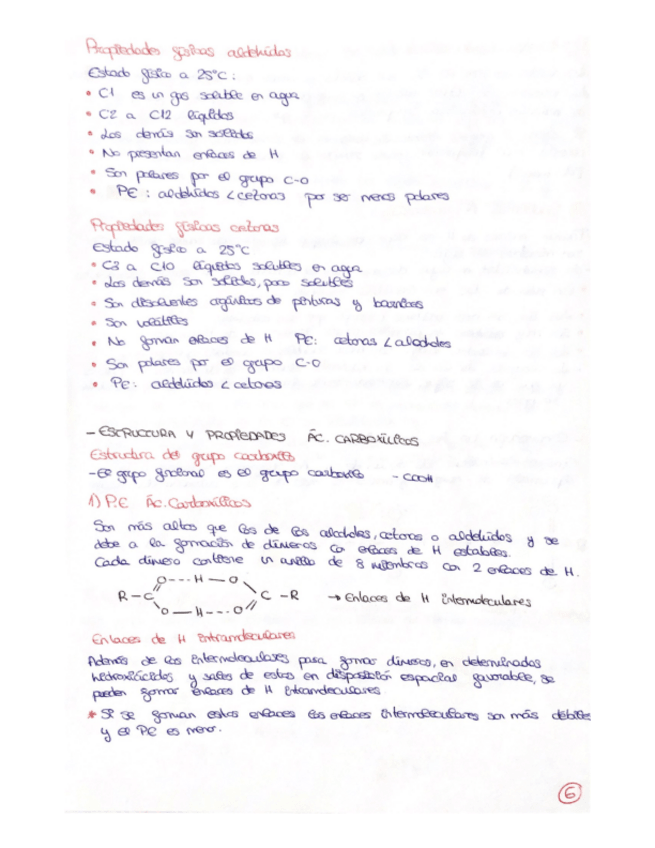 Propiedades físicas aldehídos
Estado físico a 25°C:
• C1 es un gas soluble en agua
• C2 a C12 líquidos
• Los demás son sólidos
• No presentan enlaces de H
• Son polares por el grupo C-O
• PE: aldehídos < cetonas por ser menos polares
Propiedades físicas cetonas
Estado físico a 25°C
• C3 a C10 líquidos solubles en agua
• Los demás son sólidos, poco solubles
• Son disolventes orgánicos de pinturas y barnices
• Son volátiles
• No forman enlaces de H PE: cetonas < alcoholes
• Son polares por el grupo C-O
• PE: aldehídos < cetonas
- ESTRUCTURA Y PROPIEDADES ÁC. CARBOXÍLICOS
Estructura del grupo carboxilo
- El grupo funcional es el grupo carboxilo - COOH
1) P.E Ác. Carboxílicos
Son más altos que los de los alcoholes, cetonas o aldehídos y se
debe a la formación de dímeros con enlaces de H estables.
Cada dímero contiene un anillo de 8 miembros con 2 enlaces de H.
O --- H — O
R - C C - R → Enlaces de H intermoleculares
O — H --- O
Enlaces de H intramoleculares
Además de los intermoleculares para formar dímeros, en determinados
hidroxiácidos y sales de estos en disposición espacial favorable, se
pueden formar enlaces de H intramoleculares.
* Si se forman estos enlaces los enlaces intermoleculares son más débiles
y el PE es menor.
6